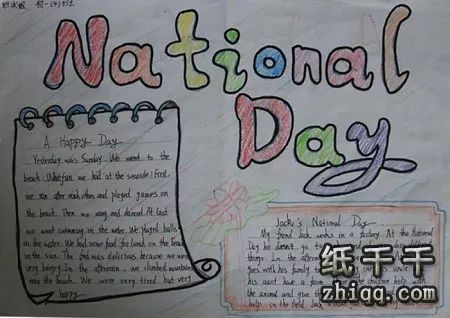 初一(4)
National
Day
A Happy Day
Yesterday was Sunday. We went to the
beach. What fun we had at the seaside! First,
we ran after each other and played games on
the beach. Then we sang and danced. At last
we went swimming in the water. We played balls
in the water. We had some food for lunch on the beach
in the sun. The food was delicious because we were
very hungry. In the afternoon, we climbed mountains
near the beach. We were very tired but very
happy.
Jack's National Day
My friend Jack works in a factory. At the National
Day he doesn't go to
things. In the afternoon
goes with his family uncle
his aunt have a farm children help with
the animal and give
help in the field
纸千千
zhiqq.com